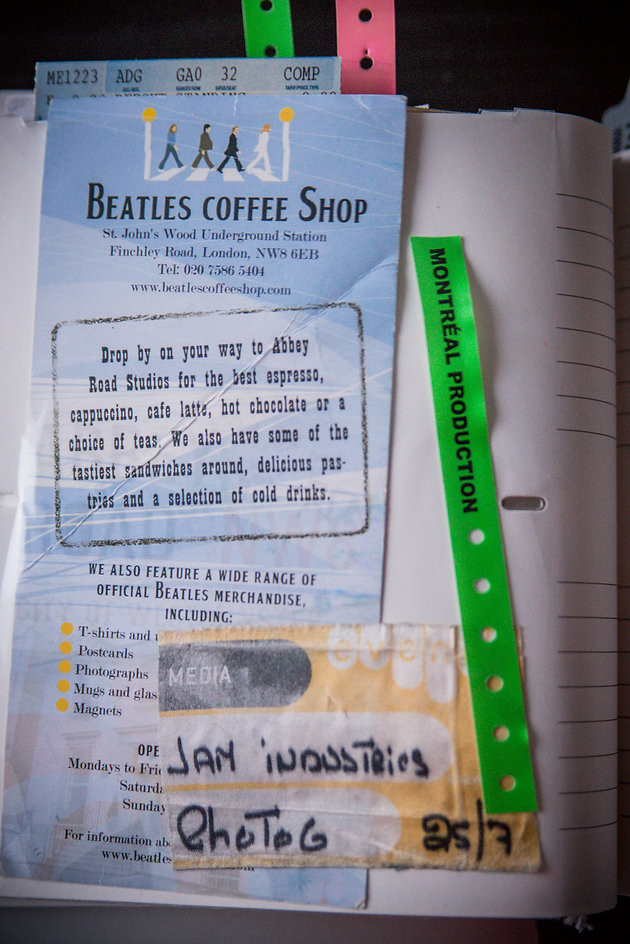 ME1223 ADG GA0 32 COMP
BEATLES COFFEE SHOP
St. John's Wood Underground Station
Finchley Road, London, NW8 6EB
Tel: 020 7586 5404
www.beatlescoffeeshop.com
Drop by on your way to Abbey
Road Studios for the best espresso,
cappuccino, cafe latte, hot chocolate or a
choice of teas. We also have some of the
tastiest sandwiches around, delicious pas-
tries and a selection of cold drinks.
WE ALSO FEATURE A WIDE RANGE OF
OFFICIAL BEATLES MERCHANDISE,
INCLUDING:
T-shirts and
Postcards
Photographs
Mugs and glas
Magnets
OPE
Mondays to Frid
Saturda
Sunday
For information ab
www.beatles
MONTRÉAL PRODUCTION
MEDIA
JAM iNDUSTRiES
PhoToG 25/7